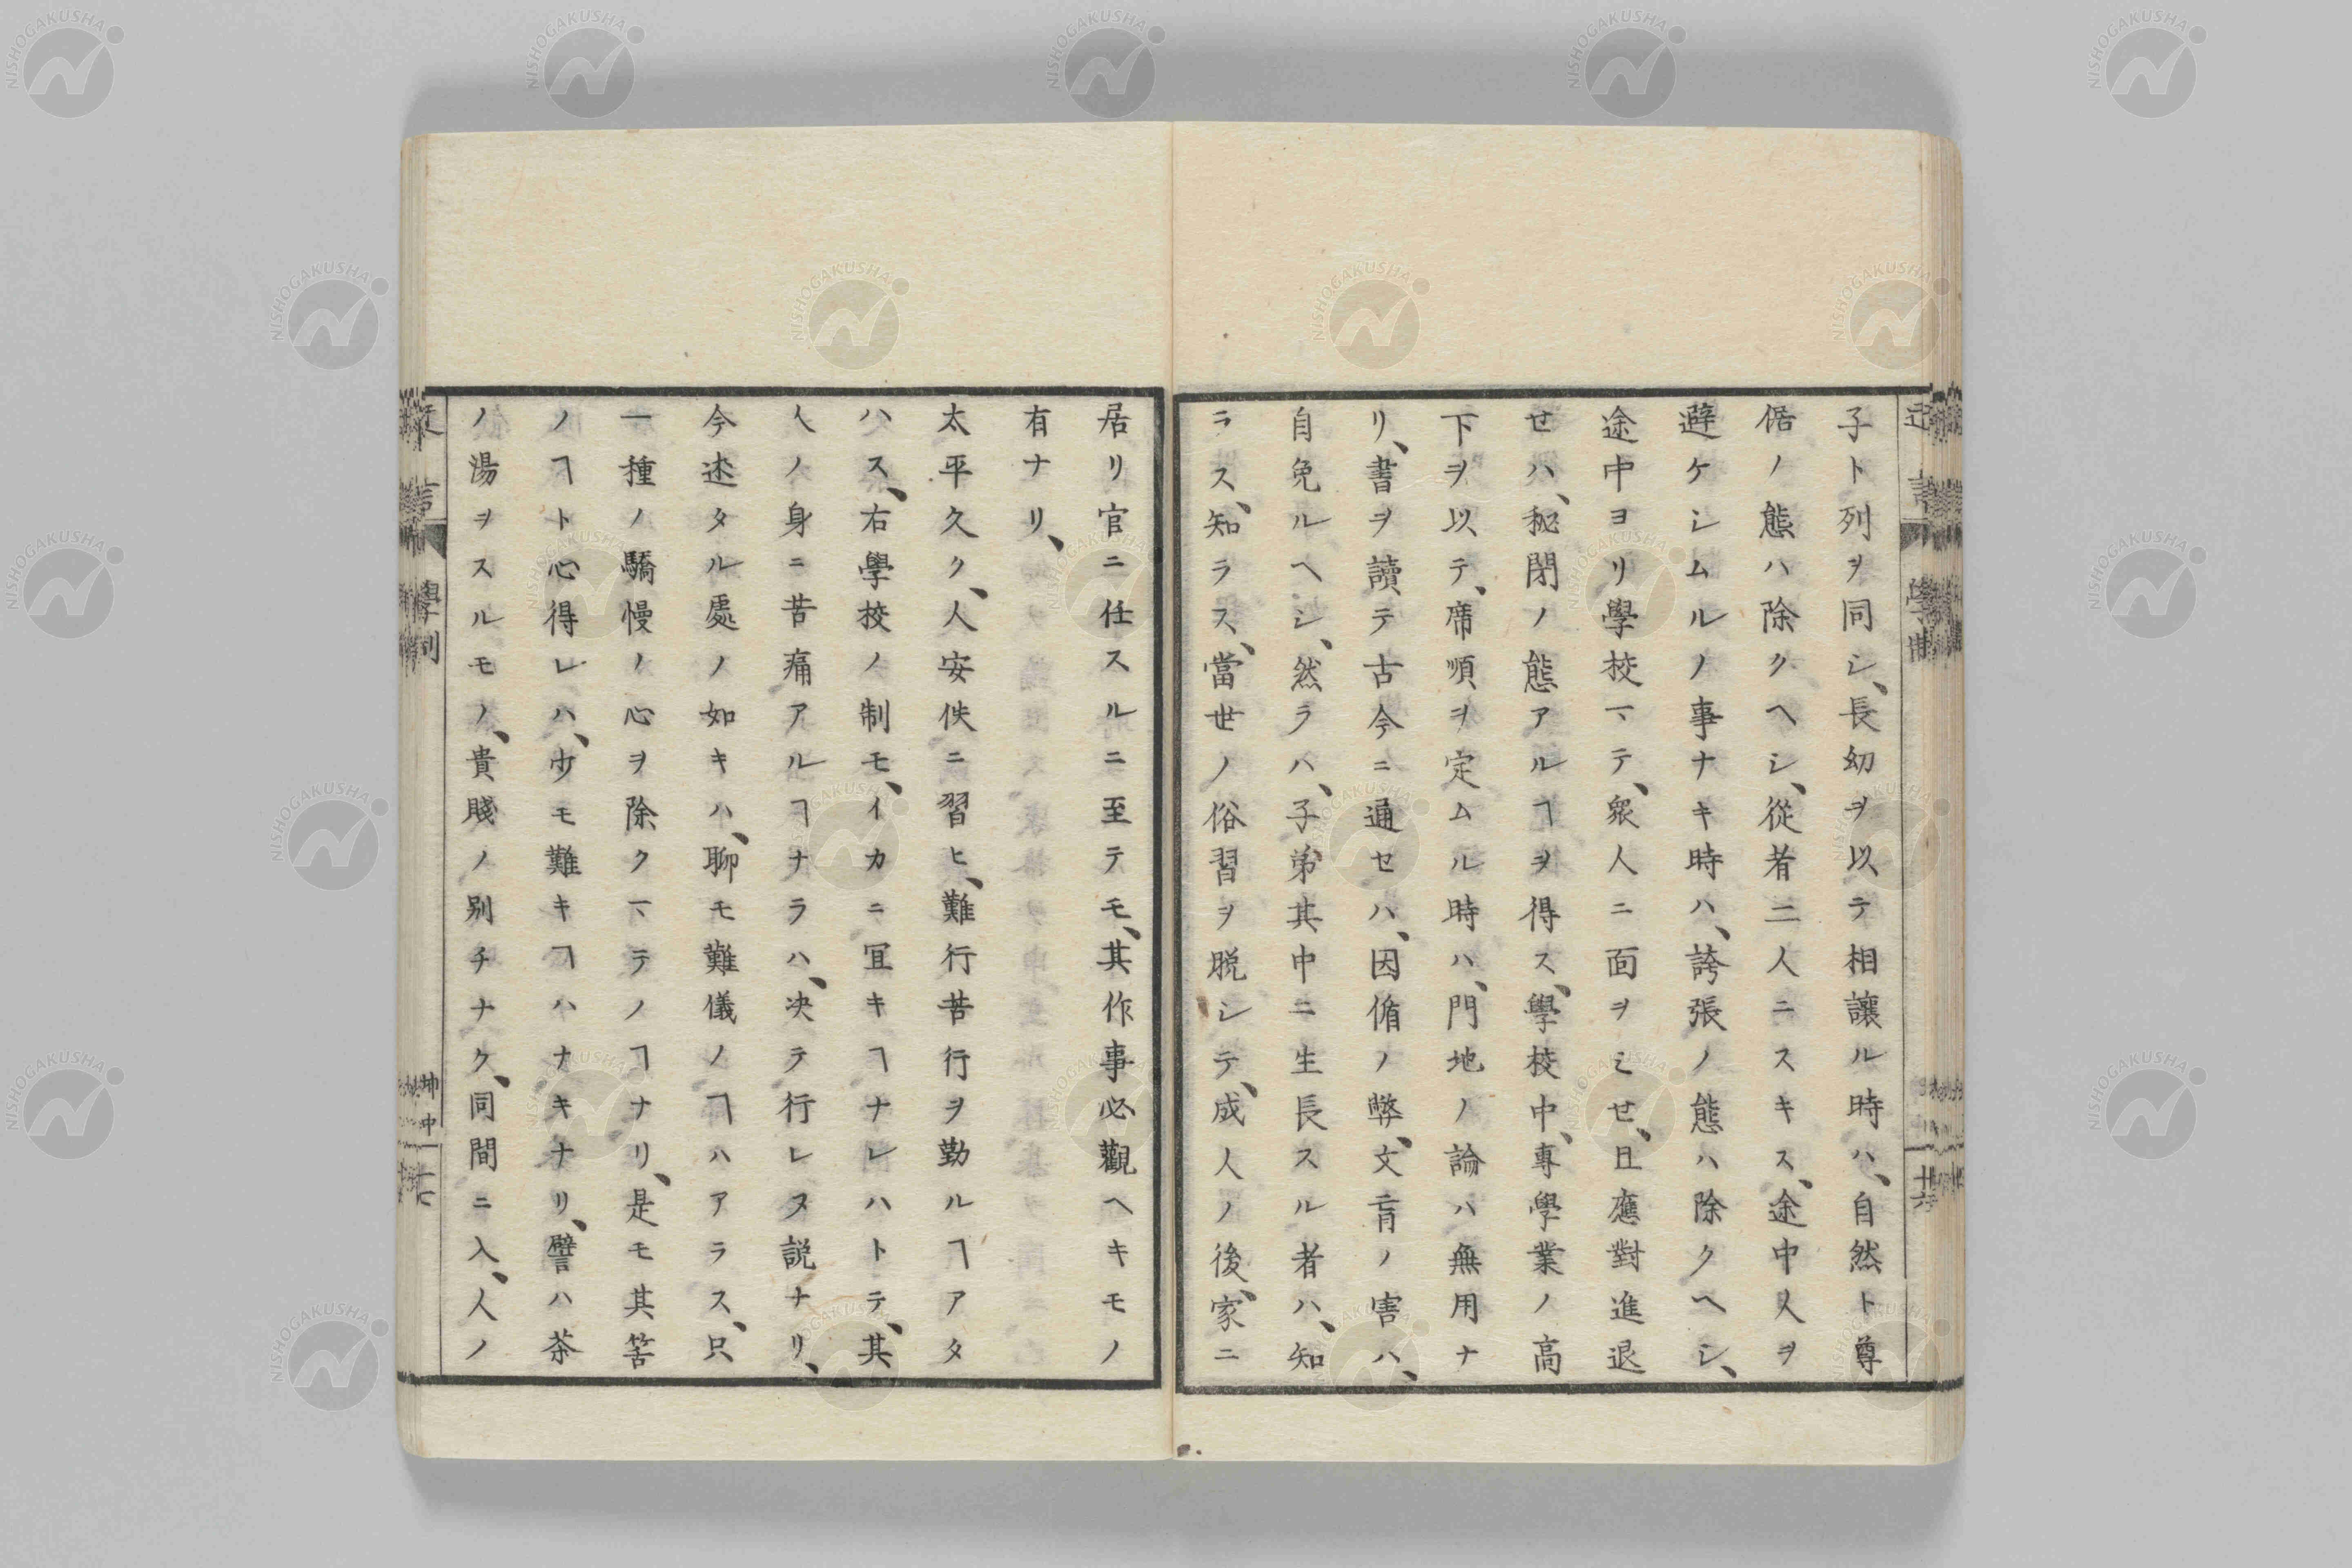 子ト列ヲ同シ、長幼ヲ以テ相讓ル時ハ、自然ト尊
倨ノ態ハ除クヘシ、從者二人ニスキス、途中人ヲ
避ケシムルノ事ナキ時ハ、誇張ノ態ハ除クヘシ、
途中ヨリ學校マテ、衆人ニ面ヲミせ、且應對進退
せハ、秘閉ノ態アルヿヲ得ス、學校中、專學業ノ高
下ヲ以テ、席順ヲ定ムル時ハ、門地ノ論ハ無用ナ
リ、書ヲ讀テ古今ニ通セハ、因循ノ弊、文盲ノ害ハ、
自免ルヘシ、然ラハ、子弟其中ニ生長スル者ハ、知
ラス、知ラス、當世ノ俗習ヲ脱シテ、成人ノ後、家ニ
居リ官ニ任スルニ至テモ、其作事必觀ヘキモノ
有ナリ、
太平久ク、人安佚ニ習ヒ、難行苦行ヲ勤ルヿアタ
ハス、右學校ノ制モ、イカニ宜キヿナレハトテ、其
人ノ身ニ苦痛アルヿナラハ、决テ行レヌ説ナリ、
今述タル處ノ如キハ、聊モ難儀ノヿハアラス、只
一種ノ驕慢ノ心ヲ除クマテノヿナリ、是モ其筈
ノヿト心得レハ、少モ難キヿハナキナリ、譬ハ茶
ノ湯ヲスルモノ、貴賤ノ別チナク、同間ニ入、人ノ